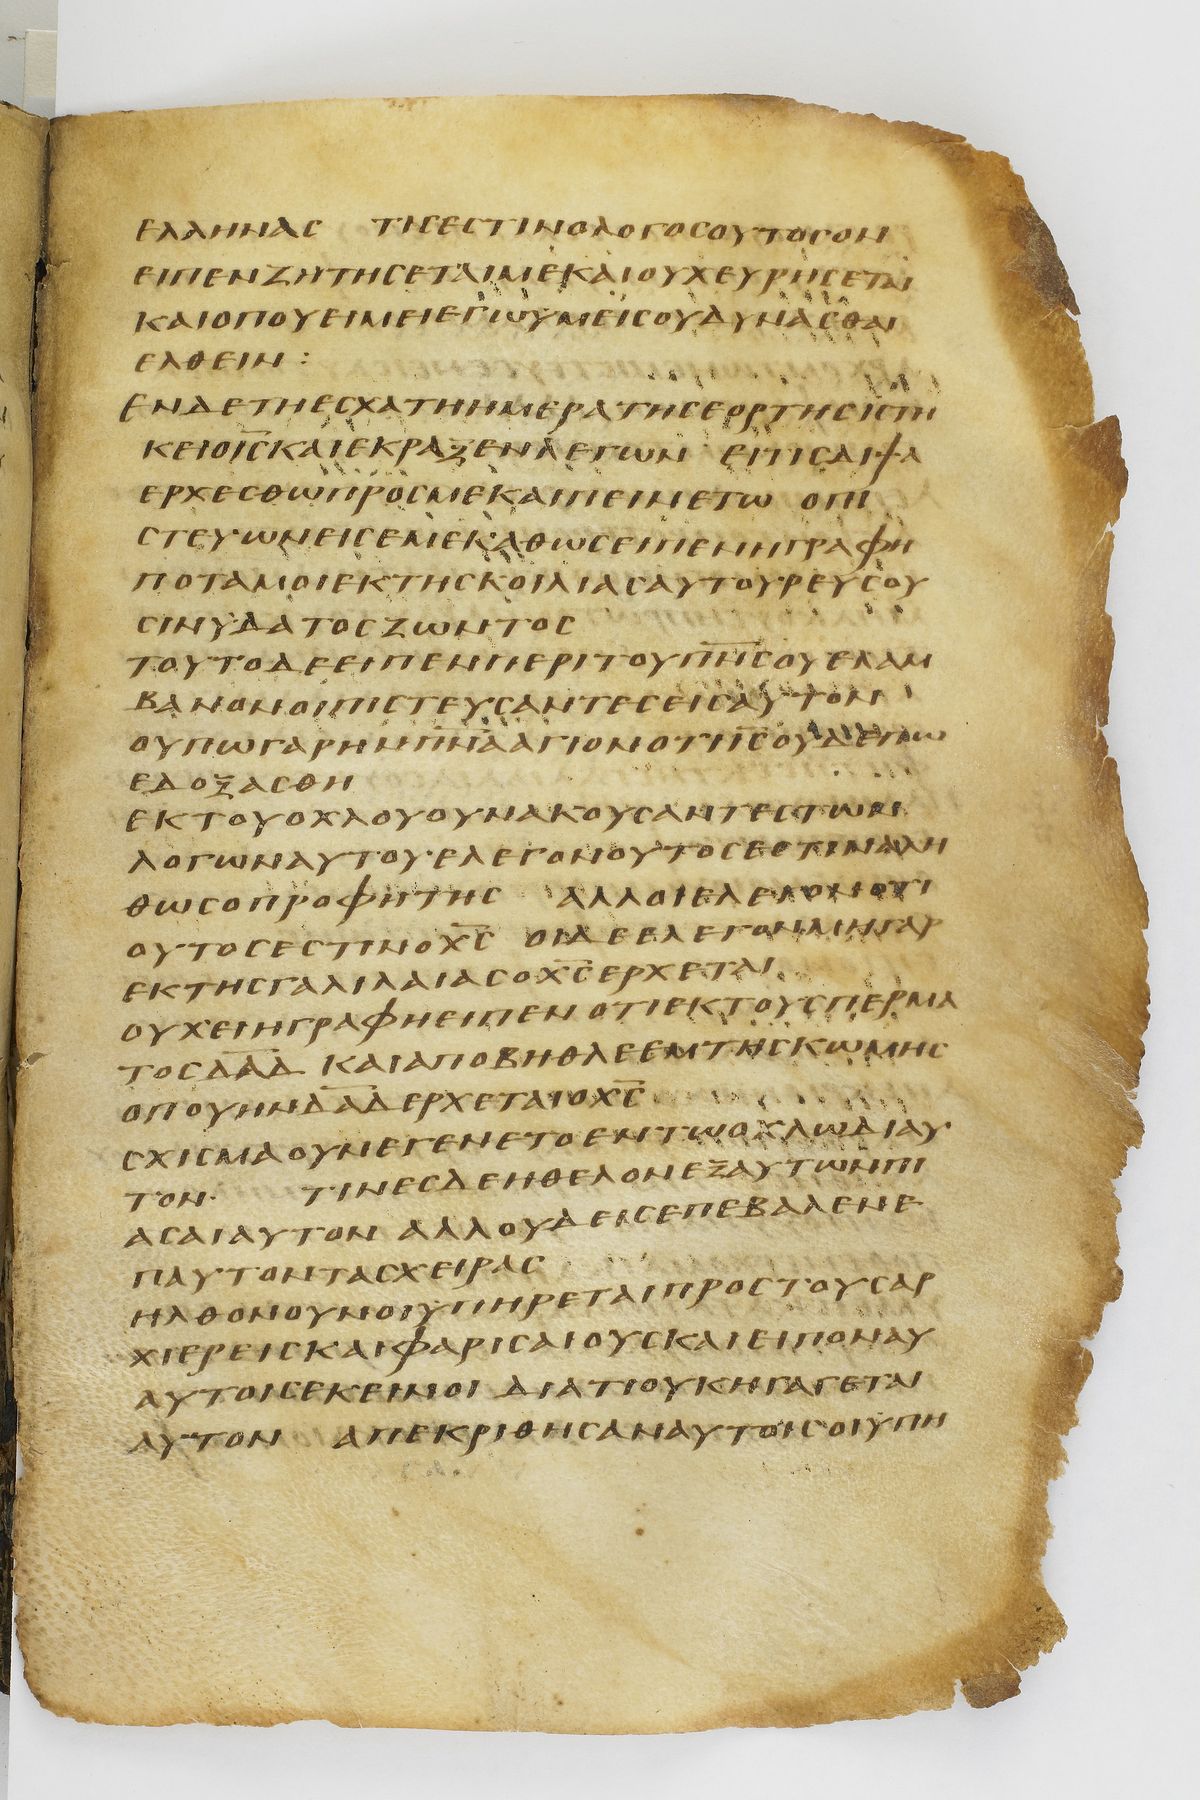 ΕΛΛΗΝΑΣ ΤΙΣΕΣΤΙΝΟΛΟΓΟΣΟΥΤΟΣΟΝ
ΕΙΠΕΝΖΗΤΗΣΕΤΑΙΜΕΚΑΙΟΥΧΕΥΡΗΣΕΤΑΙ
ΚΑΙΟΠΟΥΕΙΜΕΙΕΓΩΥΜΕΙΣΟΥΔΥΝΑΣΘΑΙ
ΕΛΘΕΙΝ :
ΕΝΔΕΤΗΕΣΧΑΤΗΗΜΕΡΑΤΗΣΕΟΡΤΗΣΙΣΤΗ
ΚΕΙΟΙ̅Σ̅ΚΑΙΕΚΡΑΞΕΝΛΕΓΩΝ ΕΙΤΙΣΔΙΨΑ
ΕΡΧΕΣΘΩΠΡΟΣΜΕΚΑΙΠΕΙΝΕΤΩ ΟΠΙ
ΣΤΕΥΩΝΕΙΣΕΜΕΚΑΘΩΣΕΙΠΕΝΗΓΡΑΦΗ
ΠΟΤΑΜΟΙΕΚΤΗΣΚΟΙΛΙΑΣΑΥΤΟΥΡΕΥΣΟΥ
ΣΙΝΥΔΑΤΟΣΖΩΝΤΟΣ
ΤΟΥΤΟΔΕΕΙΠΕΝΠΕΡΙΤΟΥΠ̅Ν̅Σ̅ΟΥΕΛΑΜ
ΒΑΝΟΝΟΙΠΙΣΤΕΥΣΑΝΤΕΣΕΙΣΑΥΤΟΝ
ΟΥΠΩΓΑΡΗΝΠ̅Ν̅Α̅ΑΓΙΟΝΟΤΙΗ̅Σ̅ΟΥΔΕΠΩ
ΕΔΟΞΑΣΘΗ
ΕΚΤΟΥΟΧΛΟΥΟΥΝΑΚΟΥΣΑΝΤΕΣΤΩΝ
ΛΟΓΩΝΑΥΤΟΥΕΛΕΓΟΝΟΥΤΟΣΕΣΤΙΝΑΛΗ
ΘΩΣΟΠΡΟΦΗΤΗΣ ΑΛΛΟΙΕΛΕΓΟΝΟΤΙ
ΟΥΤΟΣΕΣΤΙΝΟΧ̅Σ̅ ΟΙΔΕΕΛΕΓΟΝΜΗΓΑΡ
ΕΚΤΗΣΓΑΛΙΛΑΙΑΣΟΧ̅Σ̅ΕΡΧΕΤΑΙ
ΟΥΧΕΙΗΓΡΑΦΗΕΙΠΕΝΟΤΙΕΚΤΟΥΣΠΕΡΜΑ
ΤΟΣΔ̅Α̅Δ̅ ΚΑΙΑΠΟΒΗΘΛΕΕΜΤΗΣΚΩΜΗΣ
ΟΠΟΥΗΝΔ̅Α̅Δ̅ΕΡΧΕΤΑΙΟΧ̅Σ̅
ΣΧΙΣΜΑΟΥΝΕΓΕΝΕΤΟΕΝΤΩΟΧΛΩΔΙΑΥ
ΤΟΝ ΤΙΝΕΣΔΕΗΘΕΛΟΝΕΞΑΥΤΩΝΠΙ
ΑΣΑΙΑΥΤΟΝ ΑΛΛΟΥΔΕΙΣΕΠΕΒΑΛΕΝΕ
ΠΑΥΤΟΝΤΑΣΧΕΙΡΑΣ
ΗΛΘΟΝΟΥΝΟΙΥΠΗΡΕΤΑΙΠΡΟΣΤΟΥΣΑΡ
ΧΙΕΡΕΙΣΚΑΙΦΑΡΙΣΑΙΟΥΣΚΑΙΕΙΠΟΝΑΥ
ΑΥΤΟΙΣΕΚΕΙΝΟΙ ΔΙΑΤΙΟΥΚΗΓΑΓΕΤΑΙ
ΑΥΤΟΝ ΑΠΕΚΡΙΘΗΣΑΝΑΥΤΟΙΣΟΙΥΠΗ